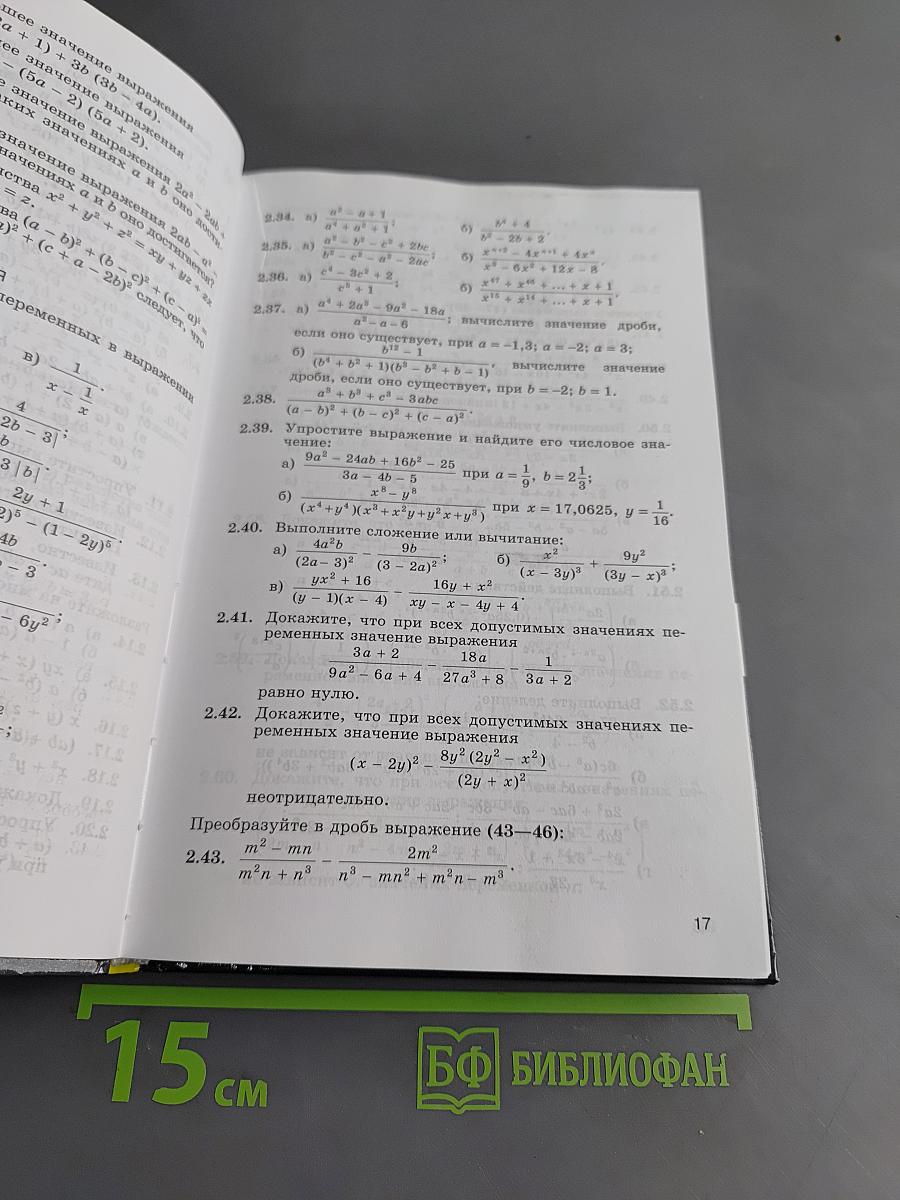 шее значение выражения
2a + 1) + 3b (3b − 4a).
ее значение выражения
− (5a − 2) (5a + 2).
е значение выражения 2a² − 2ab +
аких значениях a и b оно дости-
значение выражения 2ab − a² −
значениях a и b оно достигается?
ства x² + y² + z² = xy + yz + zx
= z.
ва (a − b)² + (b − c)² + (c − a)² =
)² + (c + a − 2b)² следует, что
Я
переменных в выражении
в) 1 / (x − 1/x)
4 / 2b − 3|;
b / 3|b|.
2y + 1 / 2)⁵ − (1 − 2y)⁵.
4b / − 3
− 6y²;
2.34. а) (a² − a + 1)/(a⁴ + a² + 1); б) (b⁴ + 4)/(b² − 2b + 2).
2.35. а) (a² − b² − c² + 2bc)/(b² − c² − a² − 2ac); б) (xⁿ⁺² − 4xⁿ⁺¹ + 4xⁿ)/(x³ − 6x² + 12x − 8).
2.36. а) (c⁴ − 3c² + 2)/(c³ + 1); б) (x⁴⁷ + x⁴⁶ + ... + x + 1)/(x¹⁵ + x¹⁴ + ... + x + 1).
2.37. а) (a⁴ + 2a³ − 9a² − 18a)/(a² − a − 6); вычислите значение дроби,
если оно существует, при a = −1,3; a = −2; a = 3;
б) (b¹² − 1)/((b⁴ + b² + 1)(b³ − b² + b − 1)), вычислите значение
дроби, если оно существует, при b = −2; b = 1.
2.38. (a³ + b³ + c³ − 3abc)/((a − b)² + (b − c)² + (c − a)²).
2.39. Упростите выражение и найдите его числовое зна-
чение:
а) (9a² − 24ab + 16b² − 25)/(3a − 4b − 5) при a = 1/9, b = 2 1/3;
б) (x⁸ − y⁸)/((x⁴+y⁴)(x³+x²y+y²x+y³)) при x = 17,0625, y = 1/16.
2.40. Выполните сложение или вычитание:
а) 4a²b/(2a − 3)² − 9b/(3 − 2a)²; б) x²/(x − 3y)³ + 9y²/(3y − x)³;
в) (yx² + 16)/((y − 1)(x − 4)) − (16y + x²)/(xy − x − 4y + 4).
2.41. Докажите, что при всех допустимых значениях пе-
ременных значение выражения
(3a + 2)/(9a² − 6a + 4) − 18a/(27a³ + 8) − 1/(3a + 2)
равно нулю.
2.42. Докажите, что при всех допустимых значениях пе-
ременных значение выражения
(x − 2y)² − 8y² (2y² − x²)/(2y + x)²
неотрицательно.
Преобразуйте в дробь выражение (43—46):
2.43. (m² − mn)/(m²n + n³) − 2m²/(n³ − mn² + m²n − m³).
17
15 см
БФ БИБЛИОФАН